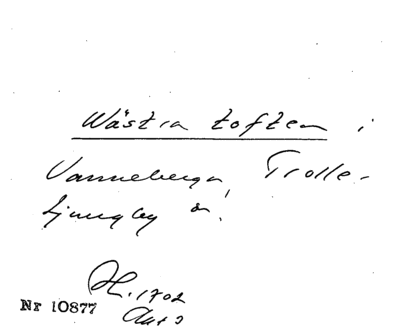 Wästra toften i
Vanneberga, Trolle-
Ljungby s:
H. 1702
Nr 10877